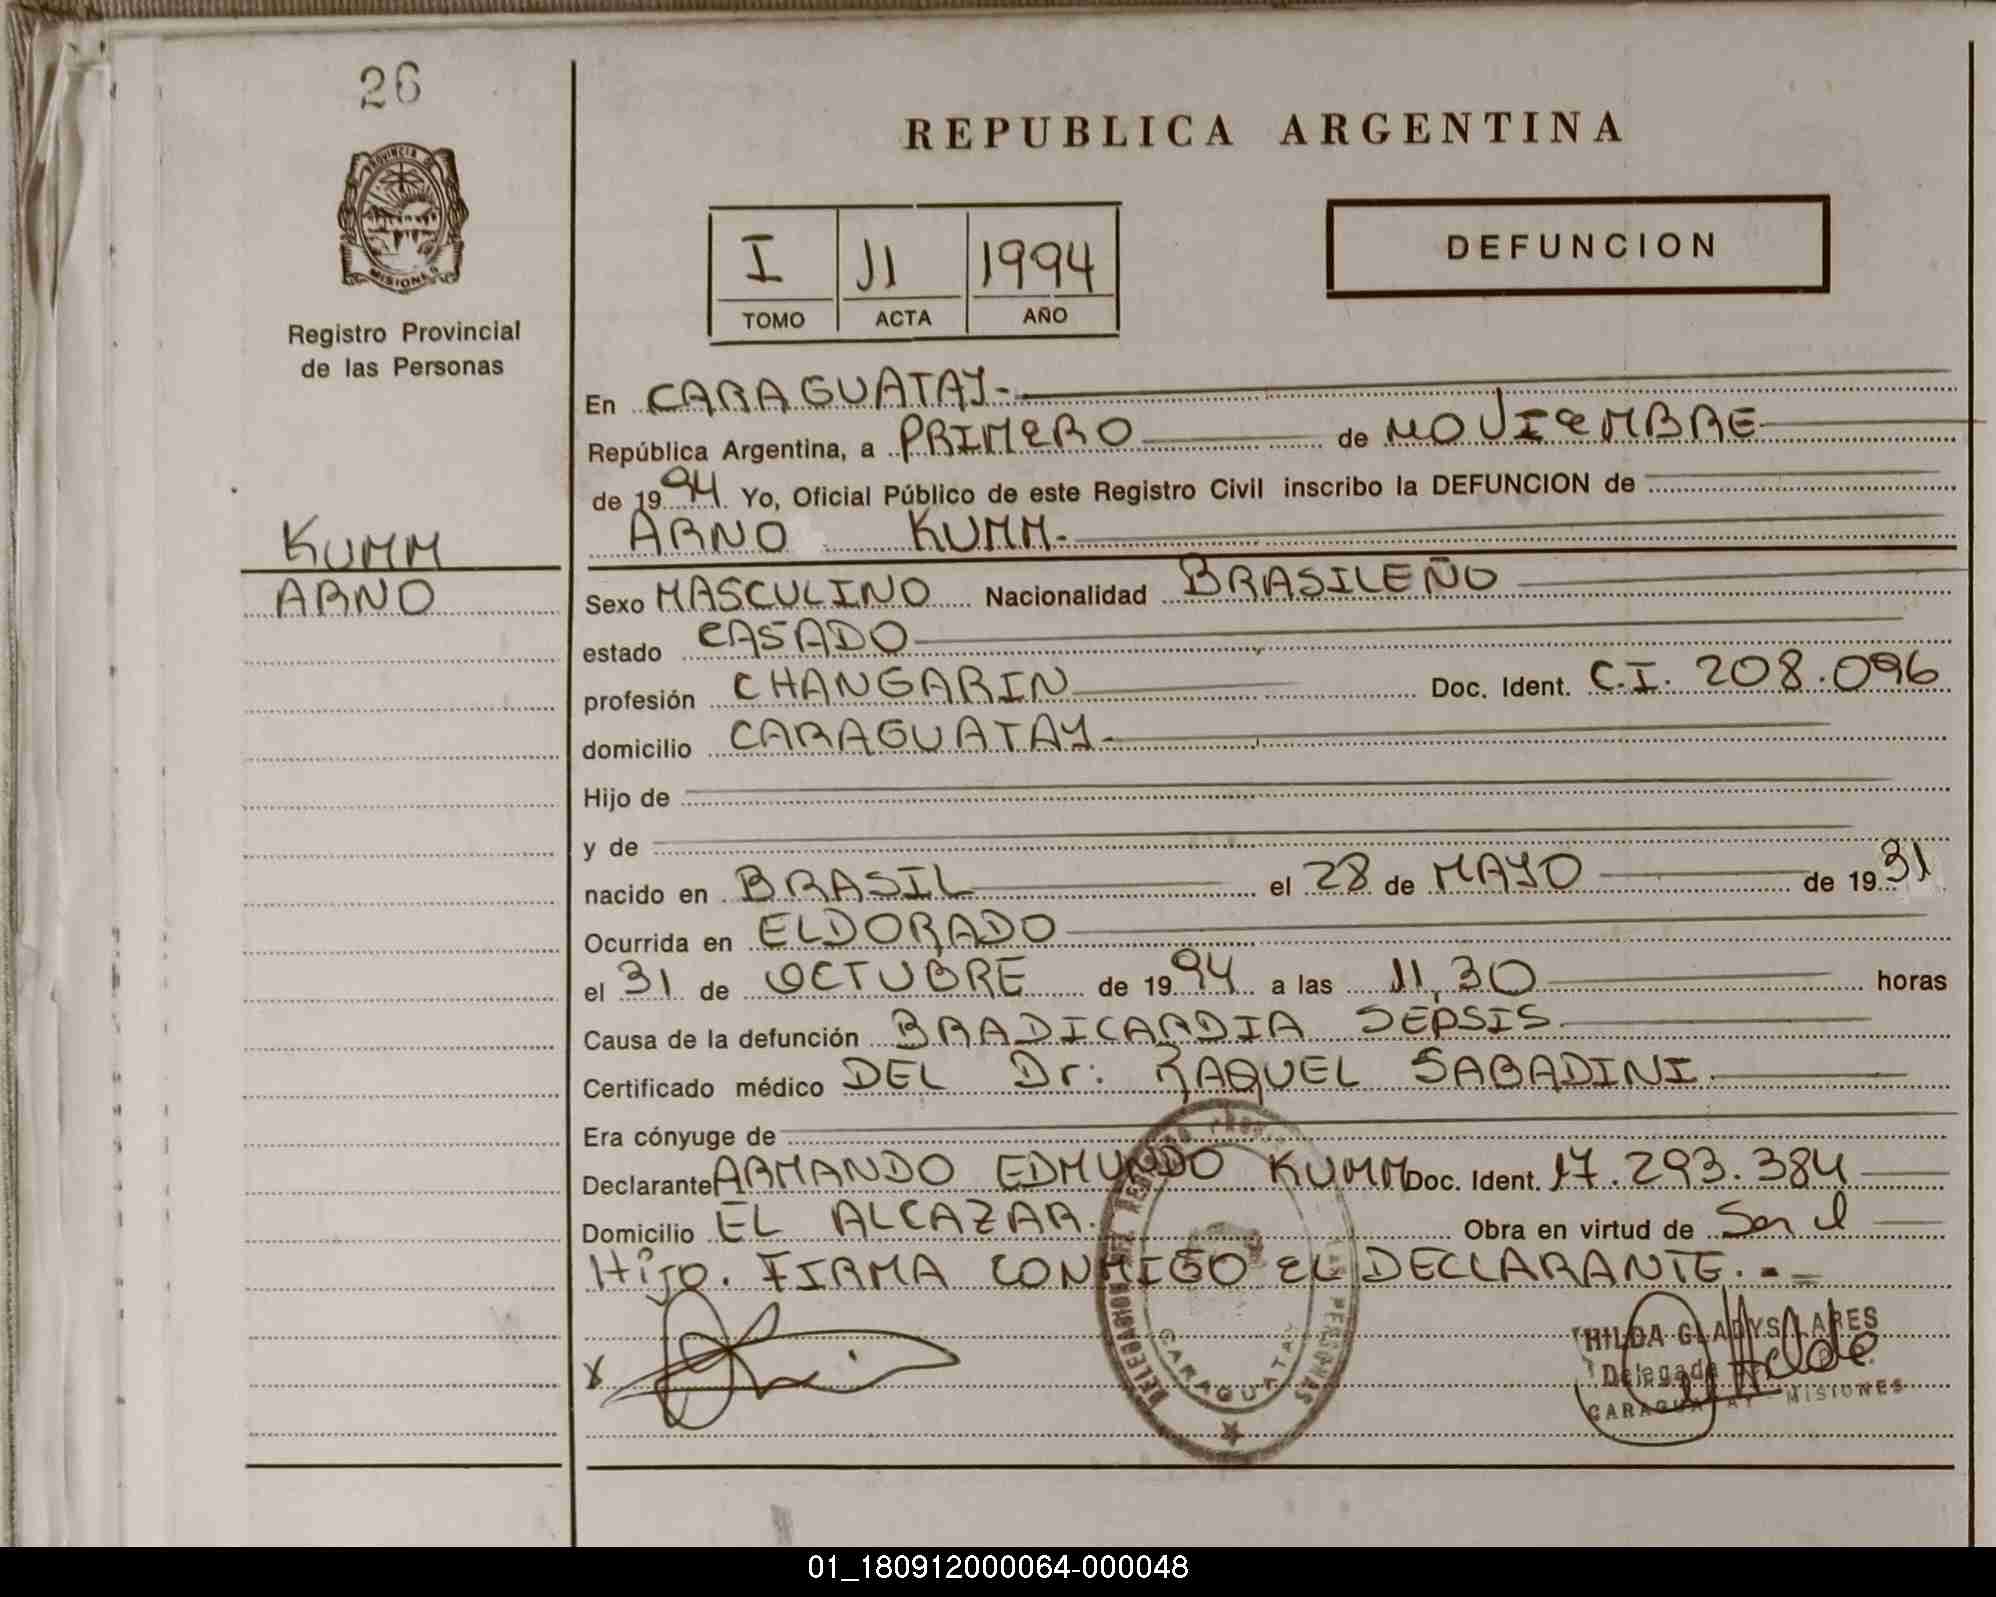 26
PROVINCIA DE
MISIONES
Registro Provincial
de las Personas
KUMM
ARNO
REPUBLICA ARGENTINA
I 11 1994
TOMO ACTA AÑO
DEFUNCION
En CARAGUATAY-
República Argentina, a PRIMERO de NOVIEMBRE
de 1994. Yo, Oficial Público de este Registro Civil inscribo la DEFUNCION de
ARNO KUMM.
Sexo MASCULINO Nacionalidad BRASILEÑO
estado CASADO
profesión CHANGARIN Doc. Ident. C.I. 208.096
domicilio CARAGUATAY-
Hijo de
y de
nacido en BRASIL el 28 de MAYO de 1931
Ocurrida en ELDORADO
el 31 de OCTUBRE de 1994 a las 11,30 horas
Causa de la defunción BRADICARDIA SEPSIS
Certificado médico DEL Dr: RAQUEL SABADINI.
Era cónyuge de
Declarante ARMANDO EDMUNDO KUMM Doc. Ident. 17.293.384
Domicilio EL ALCAZAR. Obra en virtud de Ser el
Hijo. FIRMA CONMIGO EL DECLARANTE.-=
X
CARAGUATAY
HILDA GLADYS LARES
Delegada
CARAGUATAY - MISIONES
01_180912000064-000048